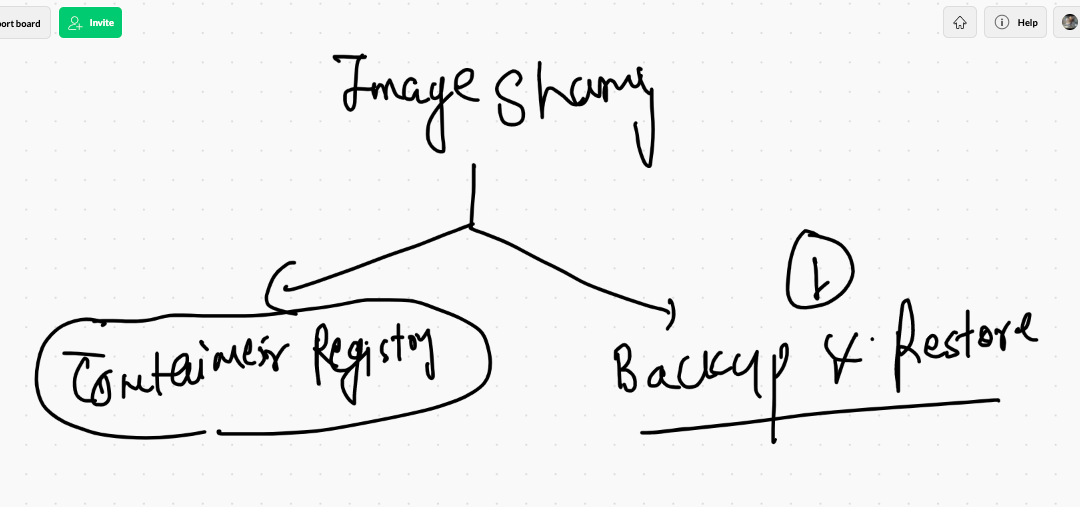 ort board Invite Help
Image Sharing
1
Container Registry
Backup & Restore